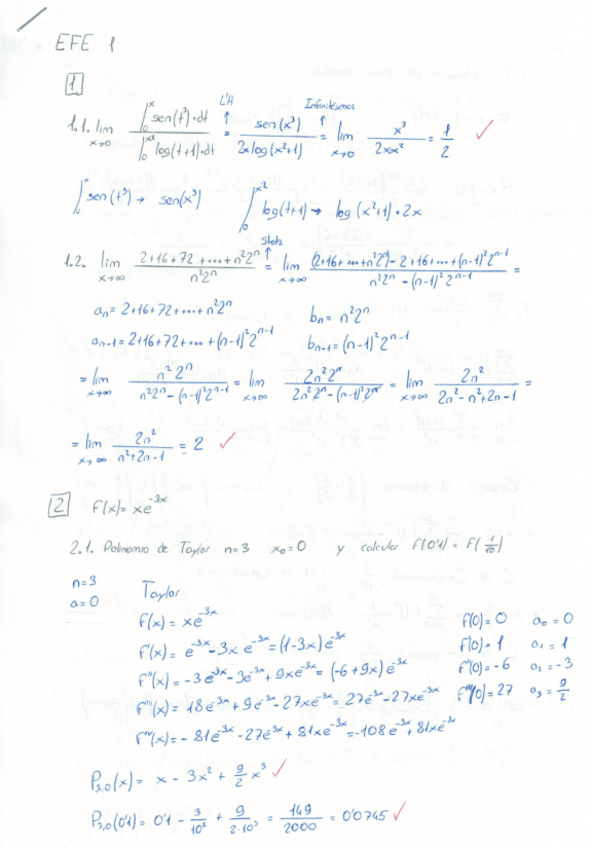 EFE 1
1
1.1. lim x→0 ∫₀ˣ sen(t³)·dt / ∫₀^x² log(t+1)·dt = L'H ↑ sen(x³) / 2x log(x²+1) = Infinitésimos ↑ lim x→0 x³ / 2xx² = 1/2 ✓
∫₀ˣ sen(t³) → sen(x³) ∫₀^x² log(t+1) → log(x²+1)·2x
1.2. lim x→∞ 2+16+72+...+n²2ⁿ / n²2ⁿ = Stolz ↑ lim x→∞ (2+16+...+n²2ⁿ)-2+16+...+(n-1)²2ⁿ⁻¹ / n²2ⁿ-(n-1)²2ⁿ⁻¹ =
aₙ = 2+16+72+...+n²2ⁿ bₙ = n²2ⁿ
aₙ₋₁ = 2+16+72+...+(n-1)²2ⁿ⁻¹ bₙ₋₁ = (n-1)²2ⁿ⁻¹
= lim x→∞ n²2ⁿ / n²2ⁿ-(n-1)²2ⁿ⁻¹ = lim x→∞ 2n²2ⁿ / 2n²2ⁿ-(n-1)²2ⁿ = lim x→∞ 2n² / 2n²-n²+2n-1 =
= lim x→∞ 2n² / n²+2n-1 = 2 ✓
2 F(x)= xe⁻³ˣ
2.1. Polinomio de Taylor n=3 x₀=0 y calcular F(0'1) = F(1/10)
n=3 Taylor
a=0
F(x) = xe⁻³ˣ F(0)=0 a₀=0
F'(x) = e⁻³ˣ-3x e⁻³ˣ =(1-3x)e⁻³ˣ F'(0)=1 a₁=1
F''(x) = -3e⁻³ˣ-3e⁻³ˣ+9xe⁻³ˣ = (-6+9x)e⁻³ˣ F''(0)=-6 a₂=-3
F'''(x) = 18e⁻³ˣ+9e⁻³ˣ-27xe⁻³ˣ = 27e⁻³ˣ-27xe⁻³ˣ F'''(0)=27 a₃=9/2
F''''(x) = -81e⁻³ˣ-27e⁻³ˣ+81xe⁻³ˣ=-108e⁻³ˣ+81xe⁻³ˣ
P₃,₀(x) = x - 3x² + 9/2 x³ ✓
P₃,₀(0'1) = 0'1 - 3/10² + 9/2·10³ = 149/2000 = 0'0745 ✓